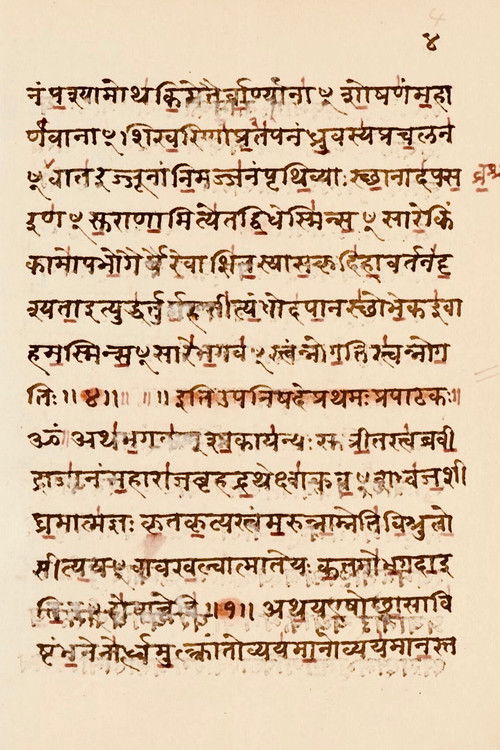 ४
नं पश्यामोथ किमेतैर्वाण्यांनाꣳ शोषणं महा
र्णवानाꣳ शिखरिणां प्रपतनं ध्रुवस्य प्रचलन
ꣳ वातरज्जूनां निमज्जनं पृथिव्याः स्थानादपस
रणꣳ सुराणामित्येतद्विधेस्मिन्सꣳसारे किं
कामोपभोगैर्यैरेवाशितस्यासकृदिहावर्तनं दृ
श्यता इत्युद्धर्तुमर्हसीत्यंधोदपानस्थो भेक इवा
हमस्मिन्सꣳसारे भगवꣳस्त्वंन्नो गतिस्त्वंन्नो ग
तिः ॥ ४ ॥ ॥ ॥ इति उपनिषदे प्रथमः प्रपाठकः ॥
ॐ अथ भगवान् शाकायन्यः सुप्रीतस्त्वब्रवी
द्राजानं महाराज बृहद्रथेक्ष्वाकुवꣳशध्वज शी
घ्रमात्मज्ञः कृतकृत्यस्त्वं मरुन्नाम्नेति विश्रुतो
सीत्ययꣳ वाव खल्वात्मा ते यः कतमो भगव इ
ति तꣳ होवाचेति ॥ १ ॥ अथ य एषोछ्वासावि
ष्टंभनेनोर्ध्वमुत्क्रांतो व्ययमानोव्ययमानस्त